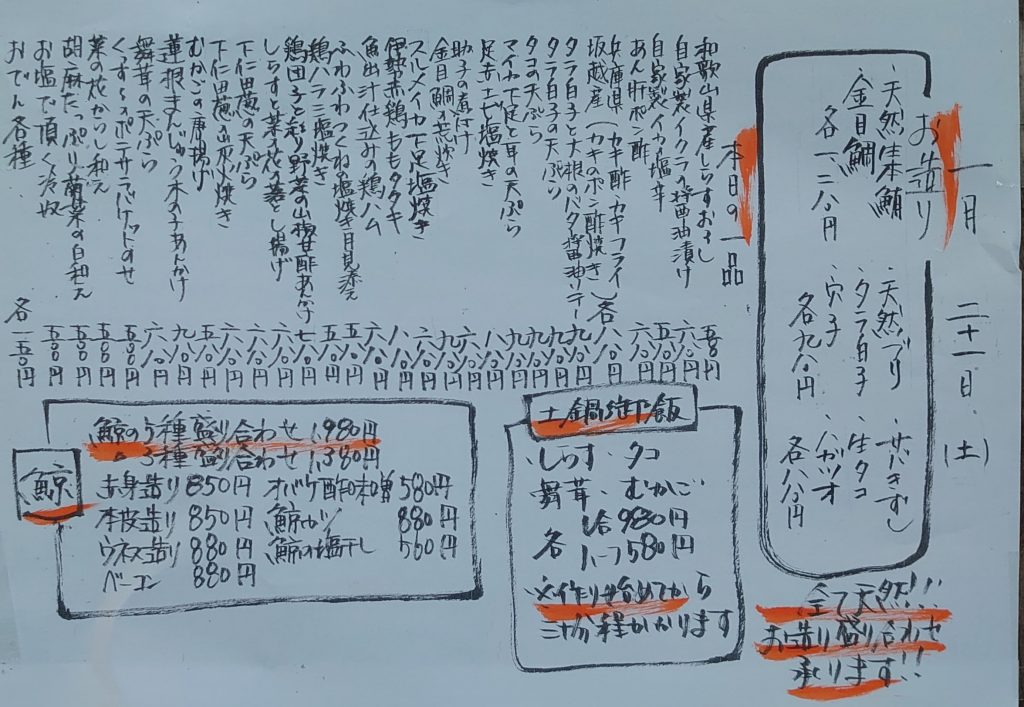 一月 二十一日 (土)
お造り
・天然本鮪
・金目鯛
各一、二八〇円
・天然ブリ
・タラ白子
・穴子
各九八〇円
・サバきずし
・生タコ
・ハガツオ
各八八〇円
全て天然!!
お造り盛り合わせ
承ります!!
本日の一品
和歌山県産しらすおろし 五八〇円
自家製イクラの醤油漬け 六八〇円
自家製イカ塩辛 五八〇円
あん肝ポン酢
兵庫県
坂越産 (カキ酢・カキフライ・カキのポン酢焼き) 各八八〇円
タラ白子と大根のバタ醤油ソテー 九八〇円
タラ白子の天ぷら 九八〇円
タコの天ぷら
マイカ下足と耳の天ぷら
足赤エビ塩焼き
助子の煮付け
金目鯛の荒炊き
スルメイカ下足塩焼き
伊勢赤鶏ももタタキ
魚出汁仕込みの鶏ハム
ふわふわつくねの塩焼き月見添え
鶏ハラミ塩焼き
鶏団子と彩り野菜の山椒甘酢あんかけ
しらすと菜の花の落とし揚げ
下仁田葱の天ぷら
下仁田葱の炭火焼き
むかごの唐揚げ
蓮根まんじゅう木の子あんかけ
舞茸の天ぷら
くんすもっポテサラバケットのせ
菜の花からし和え
胡麻たっぷり菊菜の白和え
お塩で頂く冷奴
おでん各種 各一五〇円
土鍋炊込飯
・しらす・タコ
・舞茸・むかご
各 1合 980円
ハーフ 580円
※作り始めてから
三十分程かかります
鯨
鯨の5種盛り合わせ 1,980円
〃 3種盛り合わせ 1,380円
赤身造り 850円 オバケ酢味噌 580円
本皮造り 850円 鯨カツ 880円
ウネス造り 880円 鯨の塩干し 560円
ベーコン 880円